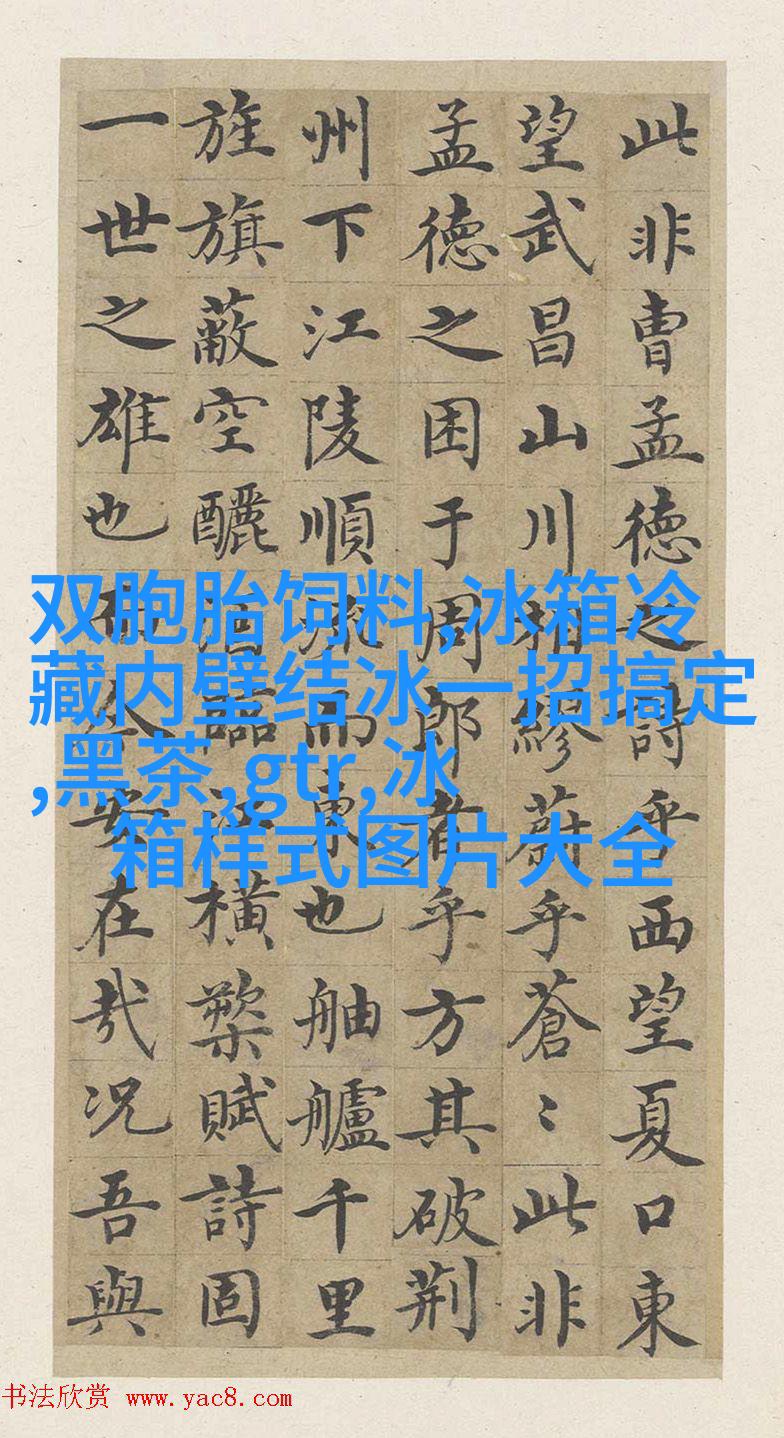 此非曹孟德之詩乎西望夏口東
望武昌山川相繆蔚乎蒼〻此非
孟德之困于周郎者乎方其破荆
州下江陵順流而東也舳艫千里
旌旗蔽空釃酒臨江橫槊賦詩固
一世之雄也而今安在哉况吾與
双胞胎饲料,冰箱冷
藏内壁结冰一招搞定
,黑茶,gtr,冰
箱样式图片大全
书法欣赏 www.yac8.com